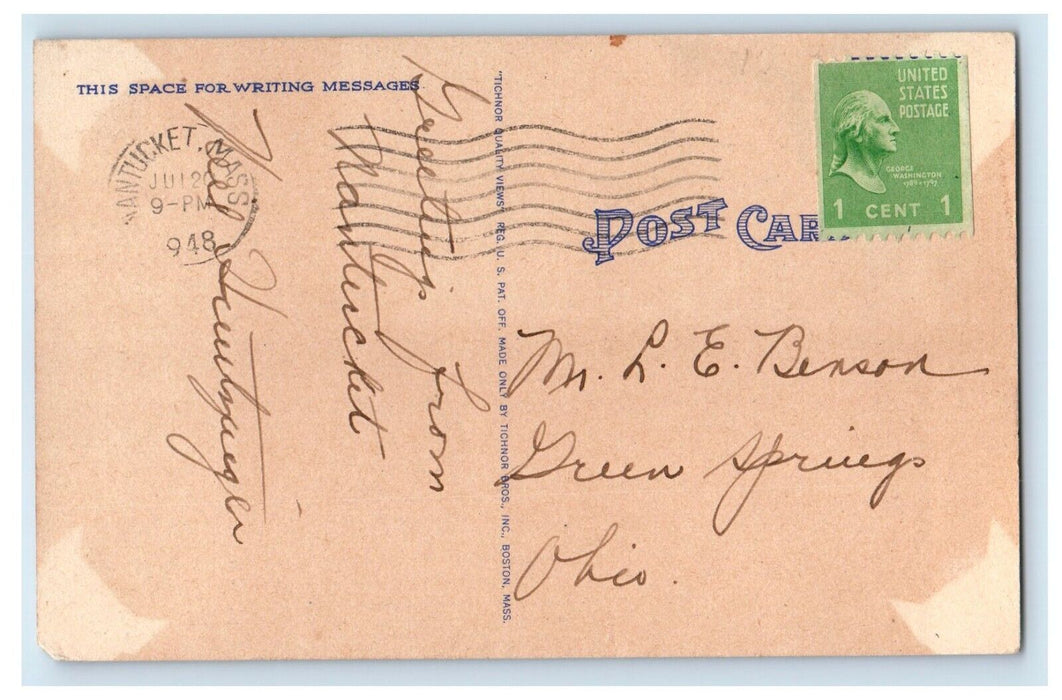 THIS SPACE FOR WRITING MESSAGES
NANTUCKET, MASS
JUL 20
9-PM
1948
Greetings from
Nantucket
"TICHNOR QUALITY VIEWS" REG. U. S. PAT. OFF. MADE ONLY BY TICHNOR BROS., INC., BOSTON, MASS.
POST CAR
UNITED
STATES
POSTAGE
GEORGE
WASHINGTON
1789-1797
1 CENT 1
Mr. L. E. Benson
Green Springs
Ohio.